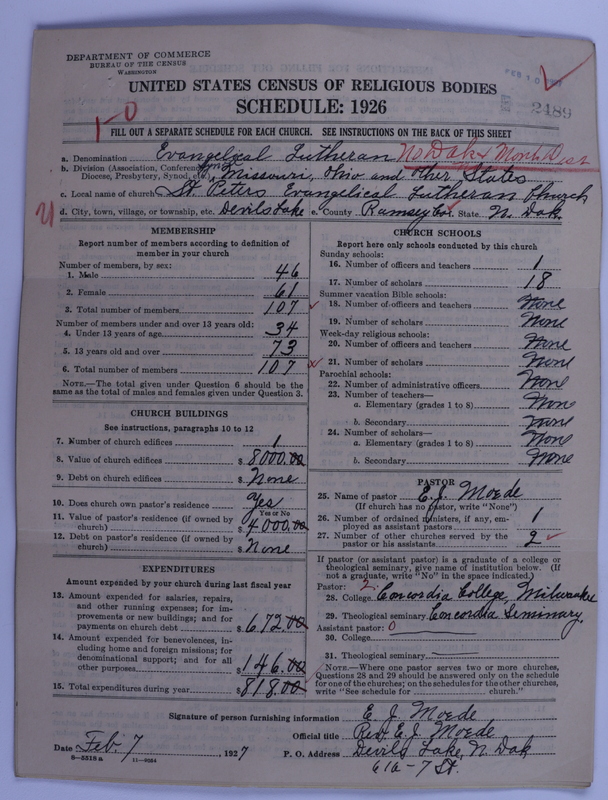 DEPARTMENT OF COMMERCE
BUREAU OF THE CENSUS
WASHINGTON
FEB 10
UNITED STATES CENSUS OF RELIGIOUS BODIES
SCHEDULE: 1926
2489
1-0
FILL OUT A SEPARATE SCHEDULE FOR EACH CHURCH. SEE INSTRUCTIONS ON THE BACK OF THIS SHEET
a. Denomination Evangelical Lutheran No Dak & Mont Dist
b. Division (Association, Conference, Diocese, Presbytery, Synod, etc.) Synod Missouri, Ohio and Other States
c. Local name of church St. Peters Evangelical Lutheran Church
d. City, town, village, or township, etc. Devils Lake e. County Ramsey Co. f. State N. Dak.
MEMBERSHIP
Report number of members according to definition of
member in your church
Number of members, by sex:
1. Male 46
2. Female 61
3. Total number of members 107
Number of members under and over 13 years old:
4. Under 13 years of age 34
5. 13 years old and over 73
6. Total number of members 107
NOTE.—The total given under Question 6 should be the
same as the total of males and females given under Question 3.
CHURCH BUILDINGS
See instructions, paragraphs 10 to 12
7. Number of church edifices 1
8. Value of church edifices $ 8000.00
9. Debt on church edifices $ None
10. Does church own pastor's residence Yes
Yes or No
11. Value of pastor's residence (if owned by
church) $ 4000.00
12. Debt on pastor's residence (if owned by
church) $ None
EXPENDITURES
Amount expended by your church during last fiscal year
13. Amount expended for salaries, repairs,
and other running expenses; for im-
provements or new buildings; and for
payments on church debt $ 672.00
14. Amount expended for benevolences, in-
cluding home and foreign missions; for
denominational support; and for all
other purposes $ 146.00
15. Total expenditures during year $ 818.00
CHURCH SCHOOLS
Report here only schools conducted by this church
Sunday schools:
16. Number of officers and teachers 1
17. Number of scholars 18
Summer vacation Bible schools:
18. Number of officers and teachers None
19. Number of scholars None
Week-day religious schools:
20. Number of officers and teachers None
21. Number of scholars None
Parochial schools:
22. Number of administrative officers None
23. Number of teachers—
a. Elementary (grades 1 to 8) None
b. Secondary None
24. Number of scholars—
a. Elementary (grades 1 to 8) None
b. Secondary None
PASTOR
25. Name of pastor E. J. Moede
(If church has no pastor, write "None")
26. Number of ordained ministers, if any, em-
ployed as assistant pastors 1
27. Number of other churches served by the
pastor or his assistants 2
If pastor (or assistant pastor) is a graduate of a college or
theological seminary, give name of institution below. (If
not a graduate, write "No" in the space indicated.)
Pastor: 2
28. College Concordia College, Milwaukee
29. Theological seminary Concordia Seminary.
Assistant pastor: 0
30. College
31. Theological seminary
NOTE.—Where one pastor serves two or more churches,
Questions 28 and 29 should be answered only on the schedule
for one of the churches; on the schedules for the other churches,
write "See schedule for church."
Signature of person furnishing information E J. Moede
Official title Rev. E. J. Moede
Date Feb. 7, 1927 P. O. Address Devils Lake, N. Dak
8-5518 a 11-9554
612-7 St.